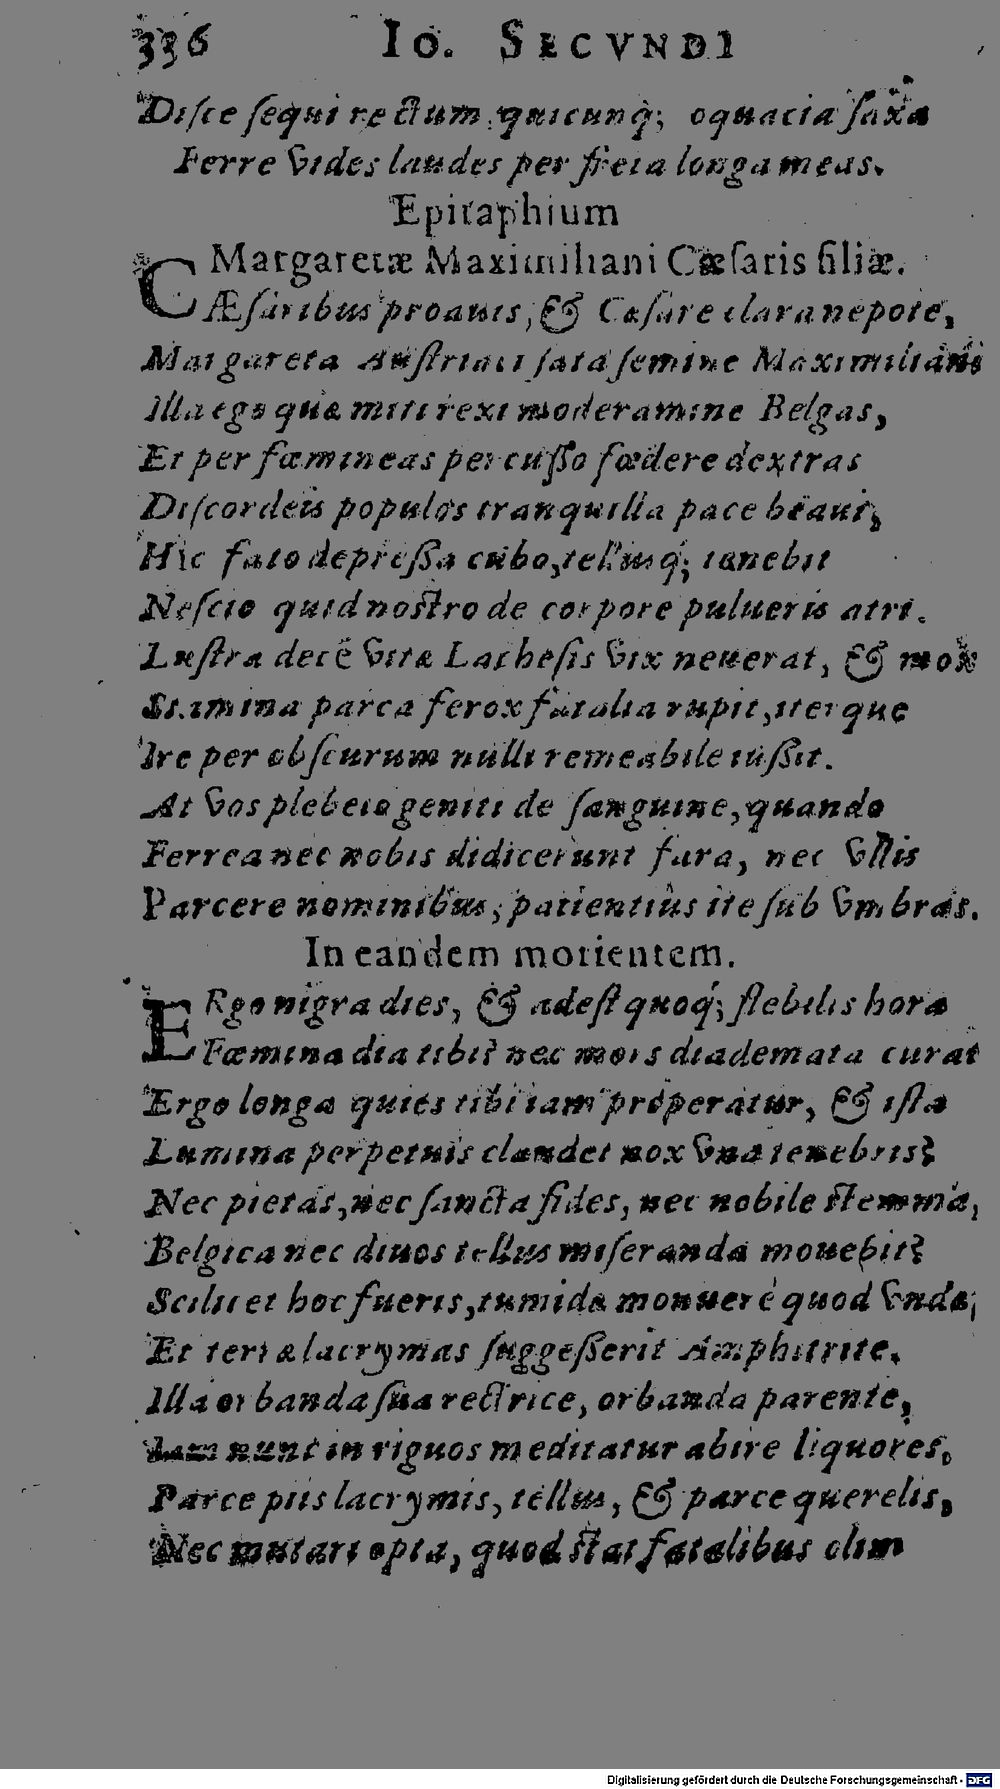 336 Io. SECVNDI
Disce sequi rectum quicunq; oquacia saxa
Ferre vides laudes per freta longa meas.
Epitaphium
Margaretæ Maximiliani Cæsaris filiæ.
CÆsaribus proauis, & Cæsare clara nepote,
Margareta Austriaci sata semine Maximiliani
Illa ego quæ miti rexi moderamine Belgas,
Et per fœmineas percusso fœdere dextras
Discordeis populos tranquilla pace beaui,
Hic fato depressa cubo, tellusq; tenebit
Nescio quid nostro de corpore pulueris atri.
Lustra decē vitæ Lachesis vix neuerat, & mox
Stamina parca ferox fatalia rupit, iterque
Ire per obscurum nulli remeabile iussit.
At vos plebeio geniti de sanguine, quando
Ferrea nec nobis didicerunt fata, nec vllis
Parcere nominibus, patientiùs ite sub vmbras.
In eandem morientem.
ERgo nigra dies, & adest quoq; flebilis hora
Fœmina dia tibi? nec mors diademata curat
Ergo longa quies tibi iam properatur, & ista
Lumina perpetuis claudet nox vna tenebris?
Nec pietas, nec sancta fides, nec nobile stemma,
Belgica nec diuos tellus miseranda mouebit?
Scilicet hoc fueris, tumidæ monuere quod vndæ,
Et terræ lacrymas suggesserit Amphitrite.
Illa orbanda sua rectrice, orbanda parente,
Iam nunc in riguos meditatur abire liquores.
Parce piis lacrymis, tellus, & parce querelis,
Nec mutari opta, quod stat fatalibus olim
Digitalisierung gefördert durch die Deutsche Forschungsgemeinschaft - DFG